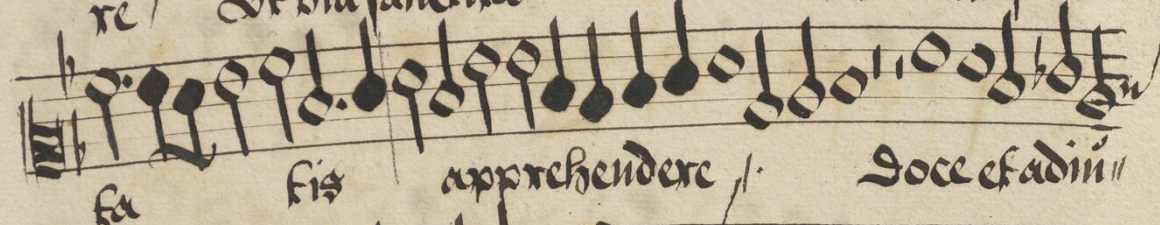 re
ta tis apprehendere doce et adiu